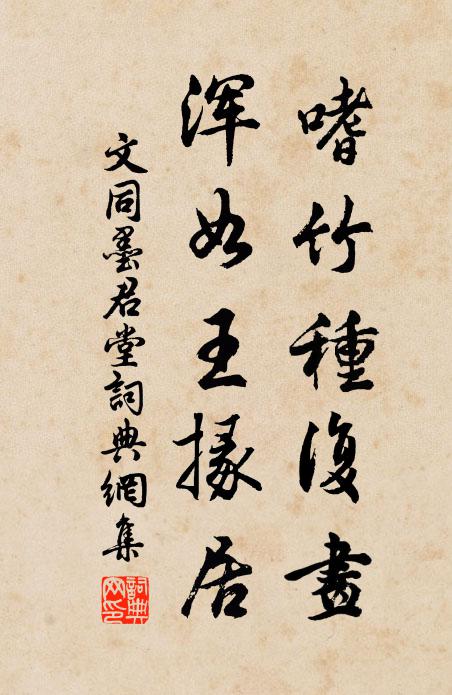 嗜竹種復畫
渾如王掾居
文同墨君堂詞典網集
詞典網印